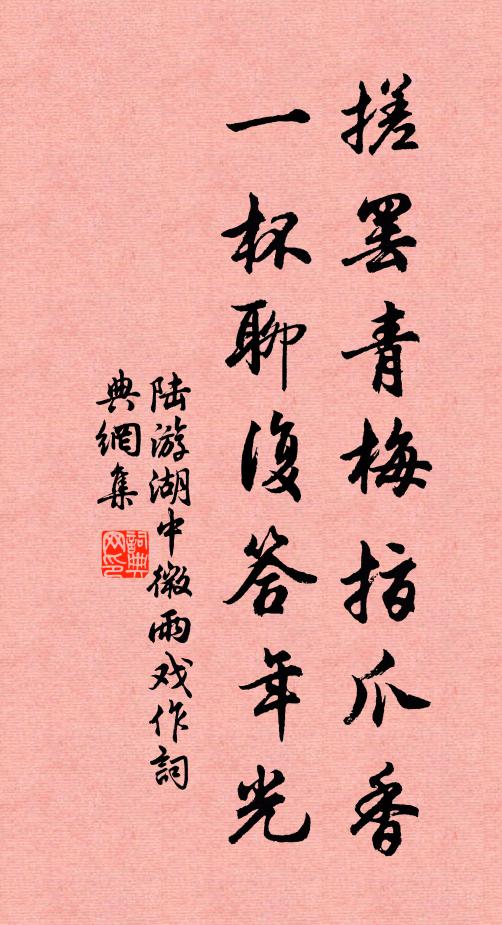 搓罢青梅指爪香
一杯聊復答年光
陆游湖中微雨戏作詞
典網集
詞典网印